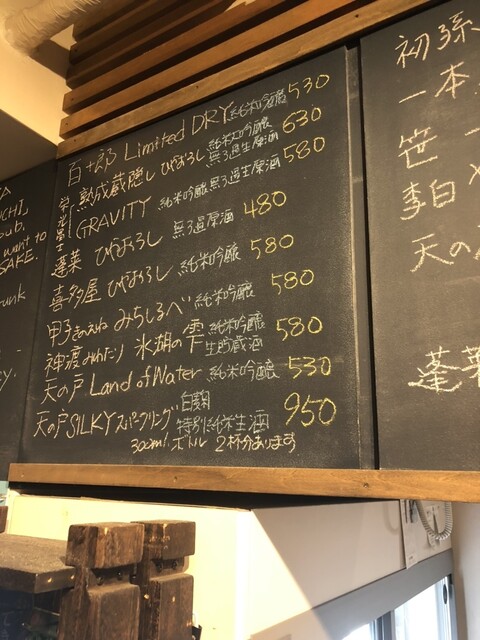 百十郎 Limited DRY 純米吟醸 530
熟成蔵隠し ひやおろし 純米大吟醸 無ろ過生原酒 630
GRAVITY 純米吟醸 無ろ過生原酒 580
蓬莱 ひやおろし 無ろ過原酒 480
喜多屋 ひやおろし 純米吟醸 580
甲子きのえね みちしるべ 純米吟醸 580
神渡みわたり 氷湖の雫 純米吟醸 生貯蔵酒 580
天の戸 Land of Water 純米吟醸 530
天の戸SILKYスパークリング 白麹 特別純米生酒 950
300ml ボトル 2杯分あります
want to
SAKE.
初孫
一本
笹一
李白
天の
蓬莱